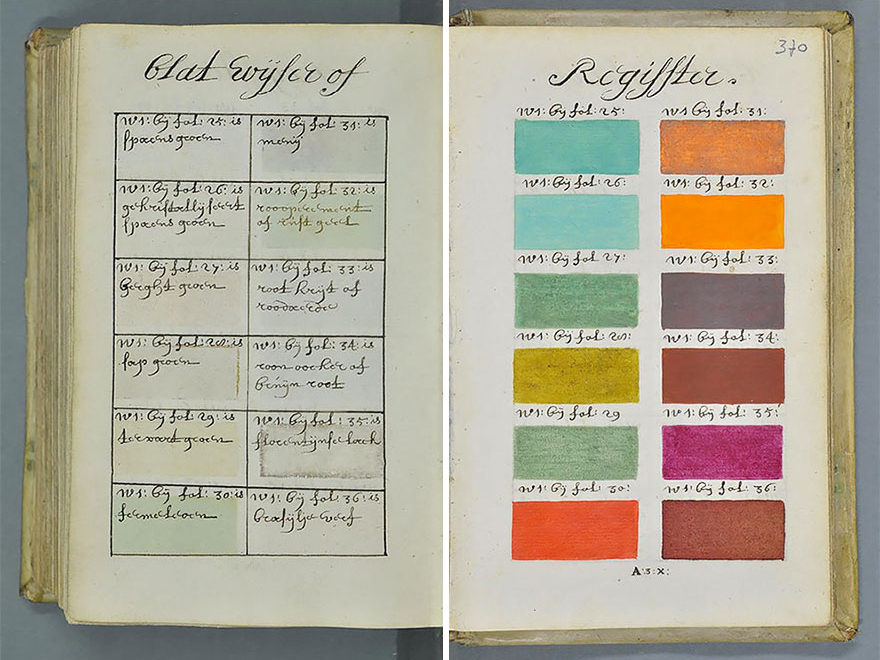 blat wijser of
w1: bij fol: 25: is
spaens groen
w1: bij fol: 31: is
menij
w1: bij fol: 26: is
spaens groen
w1: bij fol: 32: is
of rust geel
w1: bij fol: 27: is
berght groen
w1: bij fol: 33: is
root krijt of
w1: bij fol: 28: is
sap groen
w1: bij fol: 34: is
oocker of
root
w1: bij fol: 29: is
groen
w1: bij fol: 35: is
florentijnse lack
w1: bij fol: 30: is
w1: bij fol: 36: is
verf
370
Regisster.
w1: bij fol: 25:
w1: bij fol: 31:
w1: bij fol: 26:
w1: bij fol: 32:
w1: bij fol: 27:
w1: bij fol: 33:
w1: bij fol: 28:
w1: bij fol: 34:
w1: bij fol: 29
w1: bij fol: 35:
w1: bij fol: 30:
w1: bij fol: 36:
A:3:x: